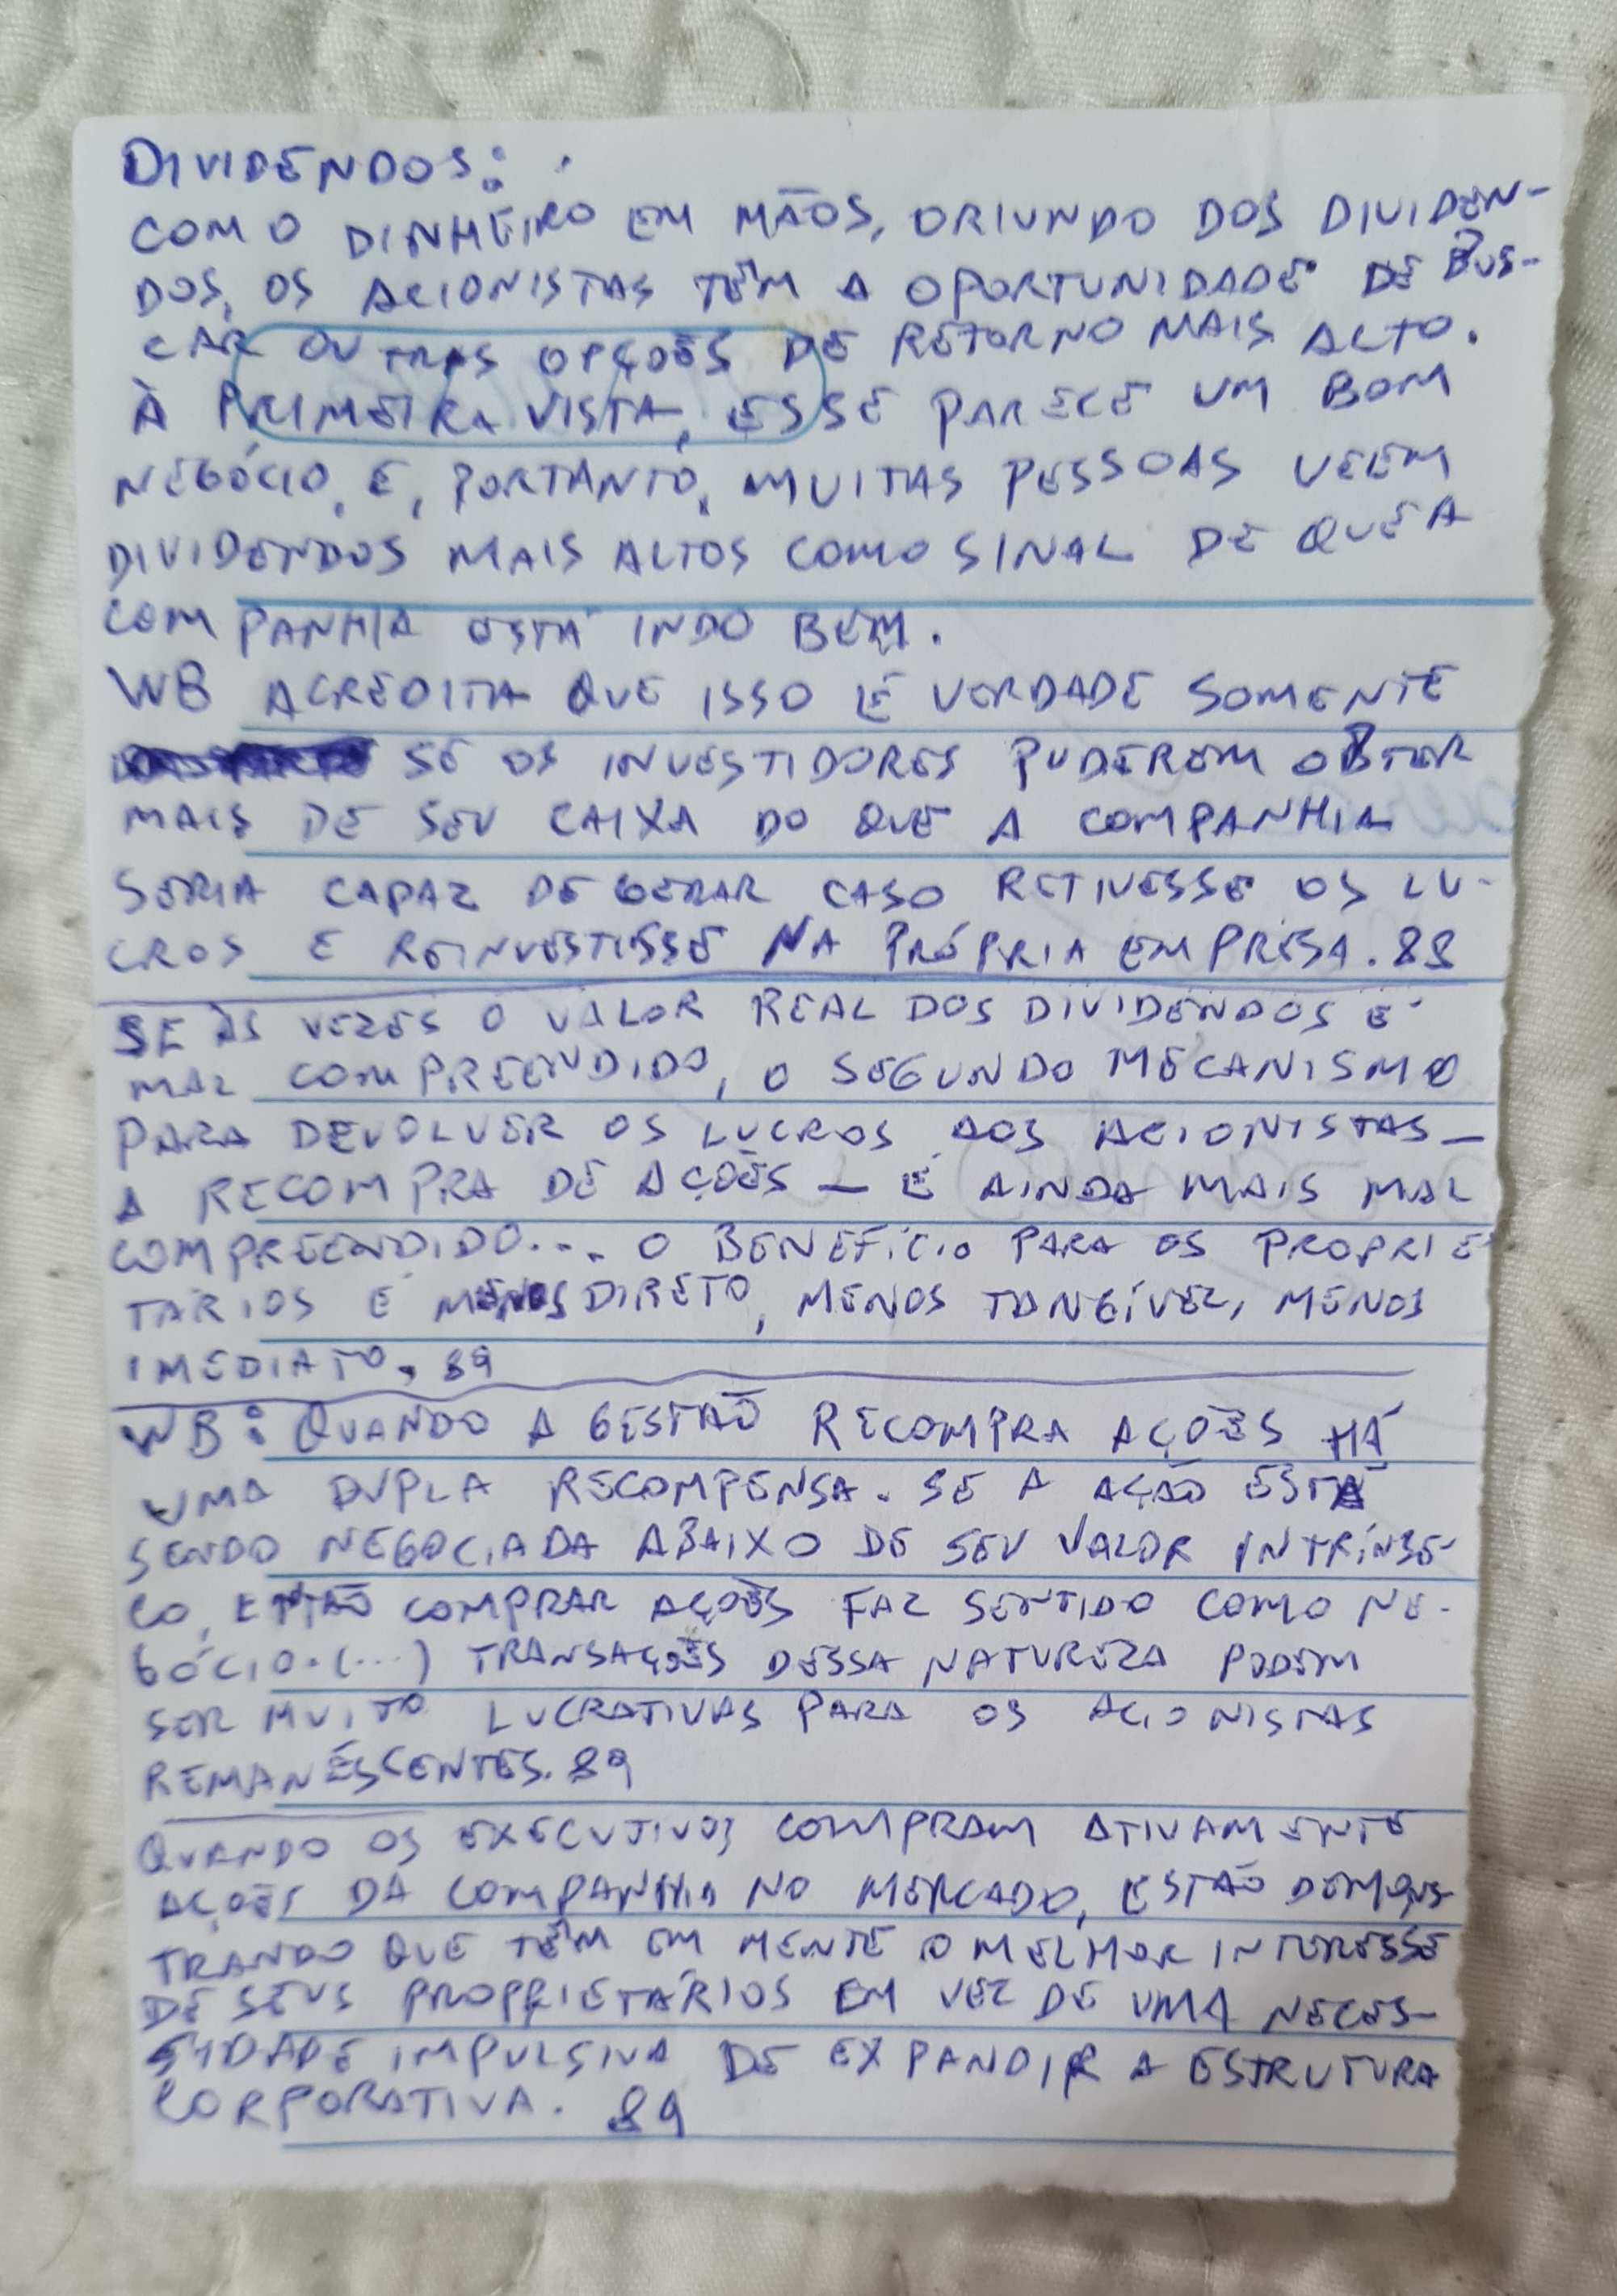 DIVIDENDOS:
COM O DINHEIRO EM MÃOS, ORIUNDO DOS DIVIDEN-
DOS, OS ACIONISTAS TÊM A OPORTUNIDADE DE BUS-
CAR OUTRAS OPÇÕES DE RETORNO MAIS ALTO.
À PRIMEIRA VISTA, ESSE PARECE UM BOM
NEGÓCIO, E, PORTANTO, MUITAS PESSOAS VEEM
DIVIDENDOS MAIS ALTOS COMO SINAL DE QUE A
COMPANHIA ESTÁ INDO BEM.
WB ACREDITA QUE ISSO É VERDADE SOMENTE
SE OS INVESTIDORES PUDEREM OBTER
MAIS DE SEU CAIXA DO QUE A COMPANHIA
SERIA CAPAZ DE GERAR CASO RETIVESSE OS LU-
CROS E REINVESTISSE NA PRÓPRIA EMPRESA. 88
SE ÀS VEZES O VALOR REAL DOS DIVIDENDOS É
MAL COMPREENDIDO, O SEGUNDO MECANISMO
PARA DEVOLVER OS LUCROS AOS ACIONISTAS —
A RECOMPRA DE AÇÕES — É AINDA MAIS MAL
COMPREENDIDO... O BENEFÍCIO PARA OS PROPRIE-
TÁRIOS É MENOS DIRETO, MENOS TANGÍVEL, MENOS
IMEDIATO. 89
WB: QUANDO A GESTÃO RECOMPRA AÇÕES HÁ
UMA DUPLA RECOMPENSA. SE A AÇÃO ESTÁ
SENDO NEGOCIADA ABAIXO DE SEU VALOR INTRÍNSE-
CO, ENTÃO COMPRAR AÇÕES FAZ SENTIDO COMO NE-
GÓCIO. (...) TRANSAÇÕES DESSA NATUREZA PODEM
SER MUITO LUCRATIVAS PARA OS ACIONISTAS
REMANESCENTES. 89
QUANDO OS EXECUTIVOS COMPRAM ATIVAMENTE
AÇÕES DA COMPANHIA NO MERCADO, ESTÃO DEMONS-
TRANDO QUE TÊM EM MENTE O MELHOR INTERESSE
DE SEUS PROPRIETÁRIOS EM VEZ DE UMA NECES-
SIDADE IMPULSIVA DE EXPANDIR A ESTRUTURA
CORPORATIVA. 89